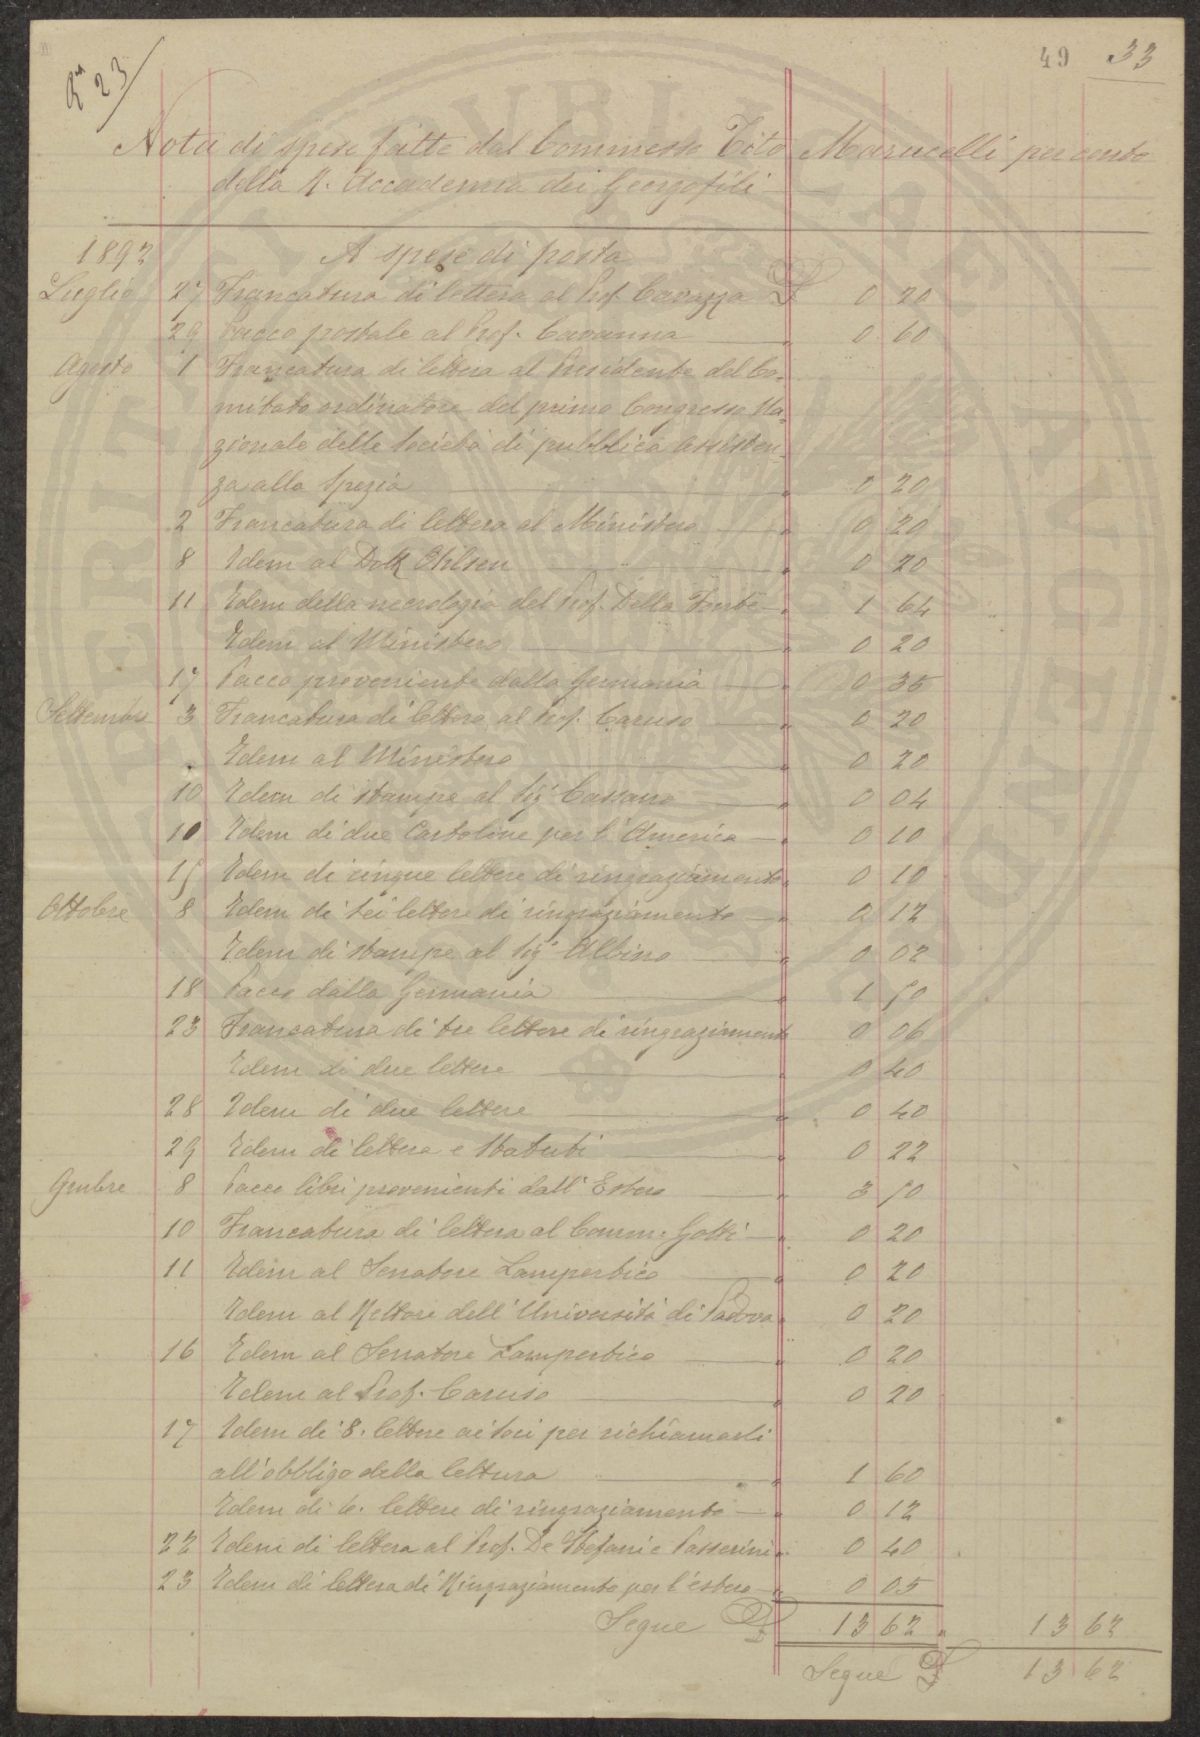 49 33
Rª 23
Nota di spese fatte dal Commesso Tito Marucelli per conto
della R. Accademia dei Georgofili
1892 A spese di posta
Luglio 27 Francatura di lettera al Prof. Cavazza L 0 20
29 Pacco postale al Prof. Cavanna " 0 60
Agosto 1 Francatura di lettera al Presidente del Co=
mitato ordinatore del primo Congresso Na=
zionale delle Società di pubblica assisten=
za alla Spezia " 0 20
2 Francatura di lettera al Ministero " 0 20
8 Idem al Dott. Ohlsen " 0 20
11 Idem della necrologia del Prof. Della Fonte " 1 64
Idem al Ministero " 0 20
17 Pacco proveniente dalla Germania " 0 35
Settembre 3 Francatura di lettera al Prof. Caruso " 0 20
" Idem al Ministero " 0 20
10 Idem di stampe al Sig. Cassano " 0 04
10 Idem di due Cartoline per l'America " 0 10
15 Idem di cinque lettere di ringraziamento " 0 10
Ottobre 8 Idem di sei lettere di ringraziamento " 0 12
Idem di stampe al Sig. Albino " 0 02
18 Pacco dalla Germania " 1 50
23 Francatura di tre lettere di ringraziamento 0 06
Idem di due lettere " 0 40
28 Idem di due lettere " 0 40
29 Idem di lettera e Statuti " 0 22
9mbre 8 Pacco libri provenienti dall'Estero " 3 50
10 Francatura di lettera al Comm. Gotti " 0 20
11 Idem al Senatore Lampertico " 0 20
Idem al Rettore dell'Università di Padova " 0 20
16 Idem al Senatore Lampertico " 0 20
Idem al Prof. Caruso " 0 20
17 Idem di 8. lettere ai soci per richiamarli
all'obbligo della lettura " 1 60
Idem di 6. lettere di ringraziamento " 0 12
22 Idem di lettera al Prof. De Stefani e Passerini " 0 40
23 Idem di lettera di Ringraziamento per l'estero " 0 05
Segue L 13 62 " 13 62
Segue L 13 62